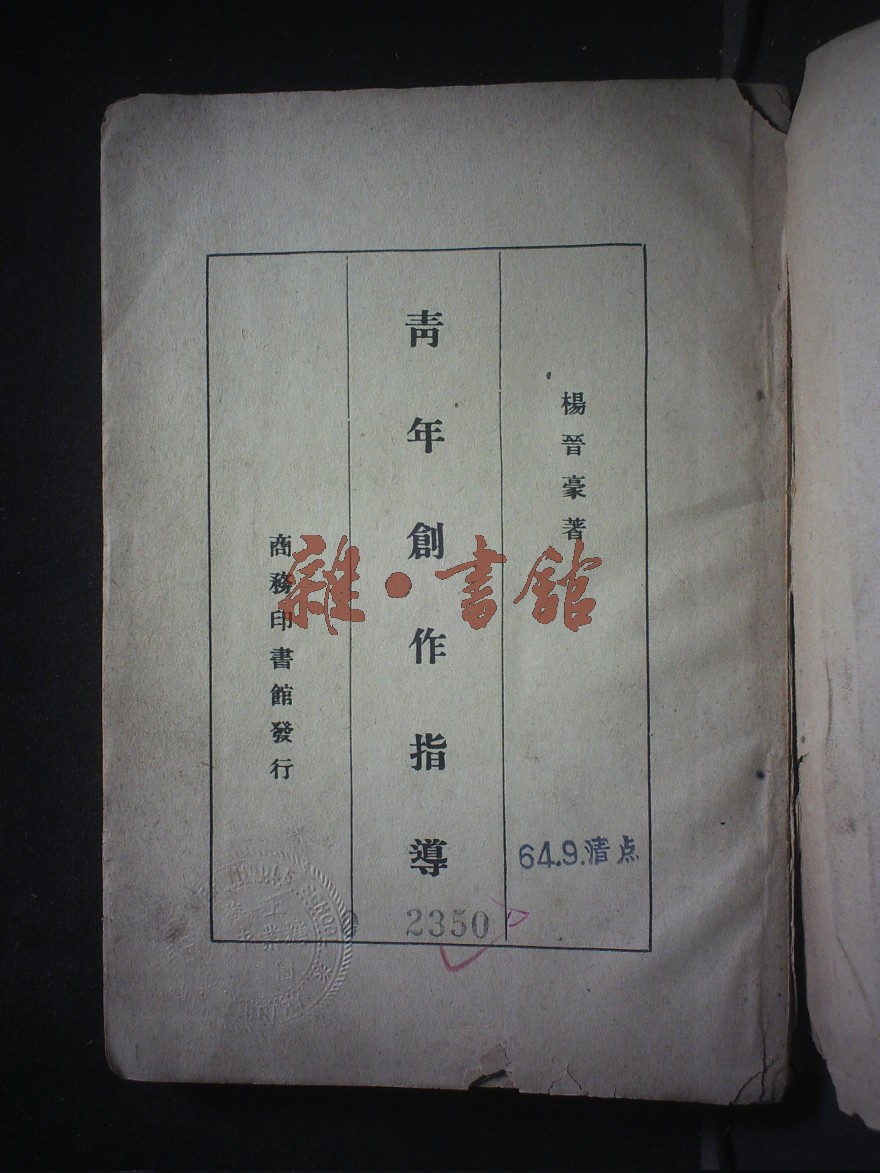 楊晉豪著
青年創作指導
商務印書館發行
雜·書館
64.9.清点
2350